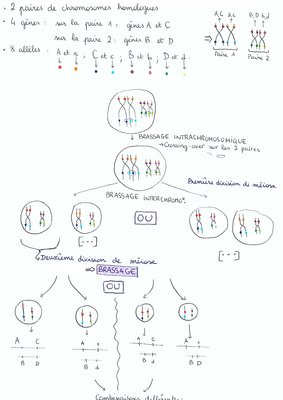 • 2 paires de chromosomes homologues
• 4 gènes : sur la paire 1 : gènes A et C
sur la paire 2 : gènes B et D
• 8 allèles : A et a ; C et c ; B et b ; D et d
A,C a,c B,D b,d
Paire 1 Paire 2
BRASSAGE INTRACHROMOSOMIQUE
→ Crossing-over sur les 2 paires
Première division de méiose
BRASSAGE INTERCHROMO
OU
[---]
[---]
Deuxième division de méiose
⇒ BRASSAGE
OU
A C A c A C A c
B D B d B d B D
Combinaisons différentes